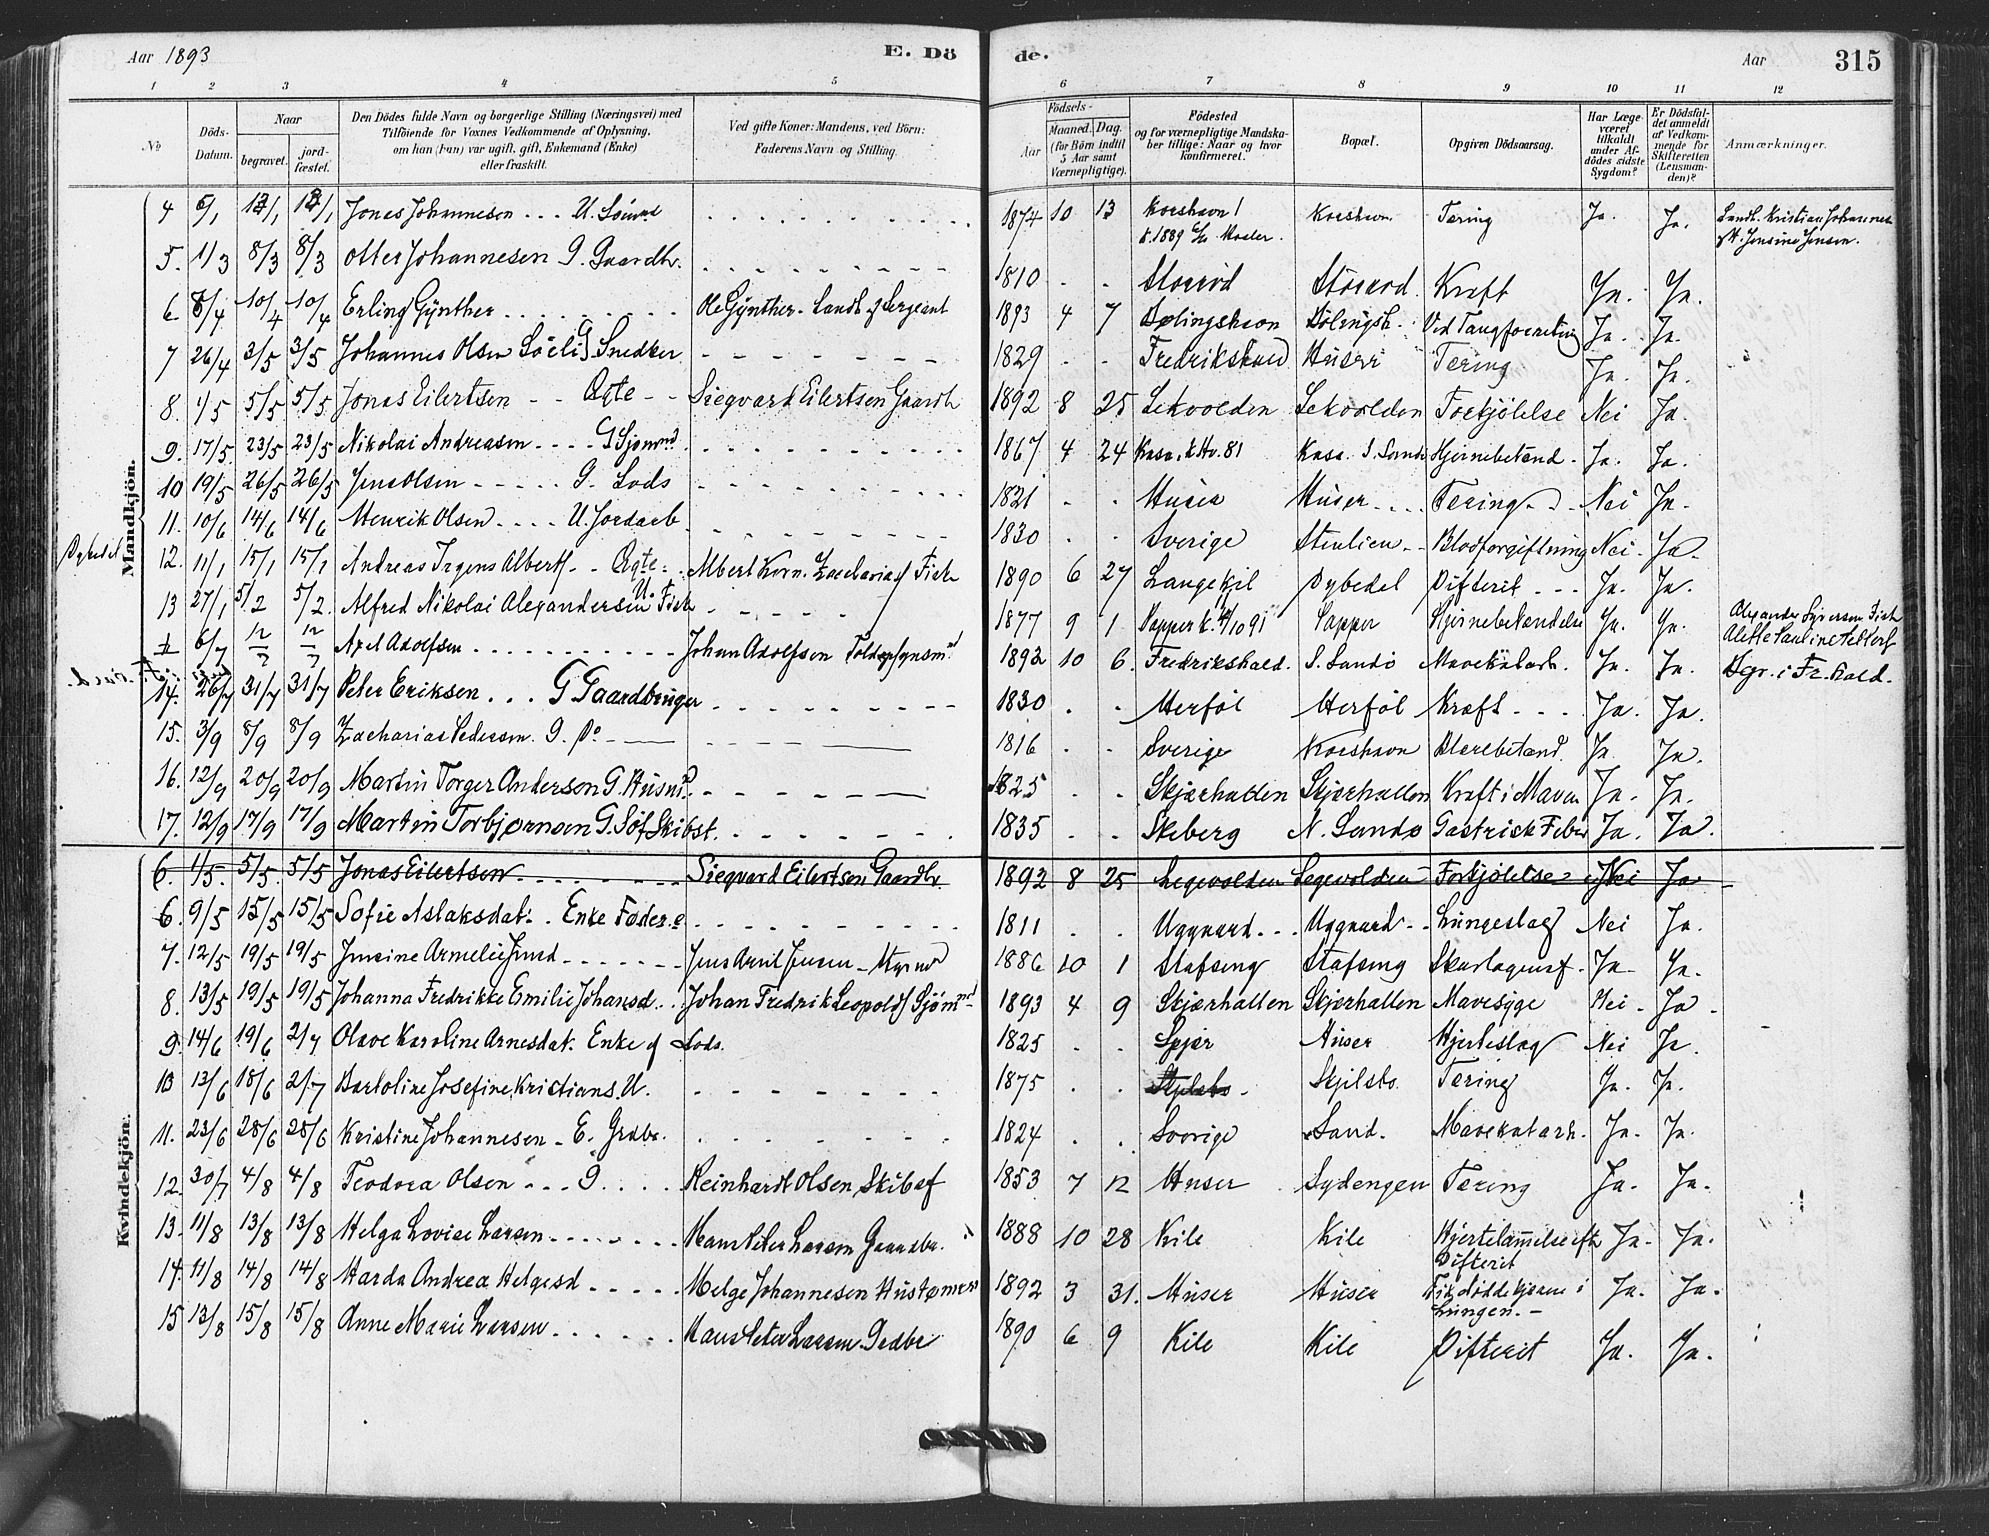 Aar 1893
E. Dö
de.
Aar
315
1 2 3 4 5 6 7 8 9 10 11 12
No
Döds-Datum.
Naar
begravet.
jord-fæstet.
Den Dödes fulde Navn og borgerlige Stilling (Næringsvei) med
Tilföiende for Voxnes Vedkommende af Oplysning,
om han (hun) var ugift, gift, Enkemand (Enke)
eller fraskilt.
Ved gifte Koner: Mandens, ved Börn:
Faderens Navn og Stilling.
Födsels-
Aar
Maaned.
Dag.
(for Börn indtil
5 Aar samt
Værnepligtige).
Födested
og for værnepligtige Mandska-
ber tillige: Naar og hvor
konfirmeret.
Bopæl.
Opgiven Dödsaarsag.
Har Læge
været
tilkaldt
under Af-
dödes sidste
Sygdom?
Er Dödsfal-
det anmeldt
af Vedkom-
mende for
Skifteretten
(Lensman-
den)?
Anmærkninger.
Mandkjön.
4 6/1 Jonas Johannesen . . . U. 1874 10 13 Korshavn Korshavn Tæring Ja. Ja.
5. 1/3 8/3 8/3 Otter Johannesen G. Gaardbr. 1810 Storrød Storrød. Kræft Ja. Ja.
6. 8/4 10/4 10/4 Erling Gÿnther Ole Gÿnther. Landh. & Sergeant 1893 4 7 Dølingshavn Dølingsh. Ved Tangforretning Ja. Ja.
7 26/4 3/5 3/5 Johannes Olsen Søeli G. Snedker 1829 Fredrikshald Huser Tæring Ja. Ja.
8. 1/5 5/5 5/5 Jonas Eilertsen - - Ægte - - Siegvard Eilertsen Gaardb 1892 8 25 Lekvolden Lekvolden Forkjølelse Nei Ja.
9. 17/5. 23/5 23/5 Nikolai Andreasen - - - - G Sjømnd 1867 4 24 Kasa, k. Hv. 81 Kasa. S. Sandø Hjernebetænd. Ja. Ja.
10 19/5 26/5 26/5 Jens Olsen - - - - - G. Lods 1821 Huser Huser - - . . Tæring Nei Ja.
11. 10/6 14/6 14/6 Henrik Olsen - - - - U. Jordarb. 1830 Sverige Stenlien - - Blodforgiftning Nei - Ja -
Dybedal
12. 11/1 15/1 15/1 Andreas Irgens Albert. - - Ægte - . Albert Korn. Zachariasf Fisk 1890 6 27 Langekil Dybedal Difterit - - - Ja. Ja.
13 27/1 5/2 5/2. Alfred Nikolai Alexandersen U. Fisk 1877 9 1 Papper k. 4/10 91 Papper Hjernebetændelse Ja. Ja. Alexander Syversen Fisk
6/7 12/7 12/7 Axel Adolfsen Johan Adolfsen Toldopsynsmd 1892 10 6. Fredrikshald. S. Sandø Mavekatarh. Ja. Ja. Begr. i Fr.hald.
14. 26/7 31/7 31/7 Peter Eriksen . . . G Gaardbruger 1830 Herføl Herføl Kræft - - - Ja. Ja.
15. 3/9 8/9 8/9 Zacharias Pedersen. G. Do 1816 Sverige Korshavn Blærebetænd. Ja. Ja.
16. 12/9 20/9 20/9 Martin Torger Anderson G. Husmd. 1825 Skjærhallen Skjærhallen Kræft i Maven Ja. Ja.
17. 12/9 17/9 17/9 Martin Torbjørnsen G. Søf Skibst. 1835 Skeberg N. Sandø Gastrisk Feber Ja. Ja.
Kvindekjön.
6. 1/5. 5/5. 5/5 Jonas Eilertsen Siegvard Eilertsen Gaardbr 1892 8 25 Legevolden Legevolden Forkjölelse Nei Ja
6. 9/5 15/5 15/5 Sofie Aslaksdat. . Enke Føder. 1811 Uggaard. . . Uggaard. . Lungeslag Nei Ja.
7. 12/5 19/5 19/5 Jensine Armelie Jensd Jens Arnt Jensen - Styrmd 1886 10 1 Stafseng Stafseng Skarlagensf. Ja - Ja.
8. 13/5 19/5 19/5 Johanna Fredrikke Emilie Johansd. . . Johan Fredrik Leopolds Sjømnd 1893 4 9 Skjærhallen Skjærhallen Mavesyge Nei - Ja -
9. 14/6 19/6 2/7 Olave Karoline Arnesdat. Enke af Lods. 1825 Spjær Huser Hjerteslag Nei Ja.
10 13/6 18/6 2/7 Bartoline Josefine Kristians. U. 1875 Skjelsbo. Skjelsbo. Tæring Ja. Ja.
11. 23/6 28/6 28/6 Kristine Johannesen - E. Grdbr. 1824 Sverige Sand. Mavekatarh. Ja. Ja.
12. 30/7 4/8 4/8 Teodora Olsen - - - G. Reinhardt Olsen Skibsf 1853 7 12 Huser Sydengen Tæring Ja. Ja.
13. 11/8 13/8 13/8 Helga Lovise Larsen Hans Peter Larsen Gaardbr. 1888 10 28 Kile Kile Hjertelammelse eft. Difterit Ja. Ja.
14. 11/8 14/8 14/8 Harda Andrea Helgesd Helge Johannesen Hustømrer 1892 3 31. Huser Huser Fik i Lungen. - Ja. Ja.
15 13/8 15/8 15/8 Anne Marie Larsen Hans Peter Larsen. Grdbr 1890 6 9 Kile Kile Difterit Ja. Ja.